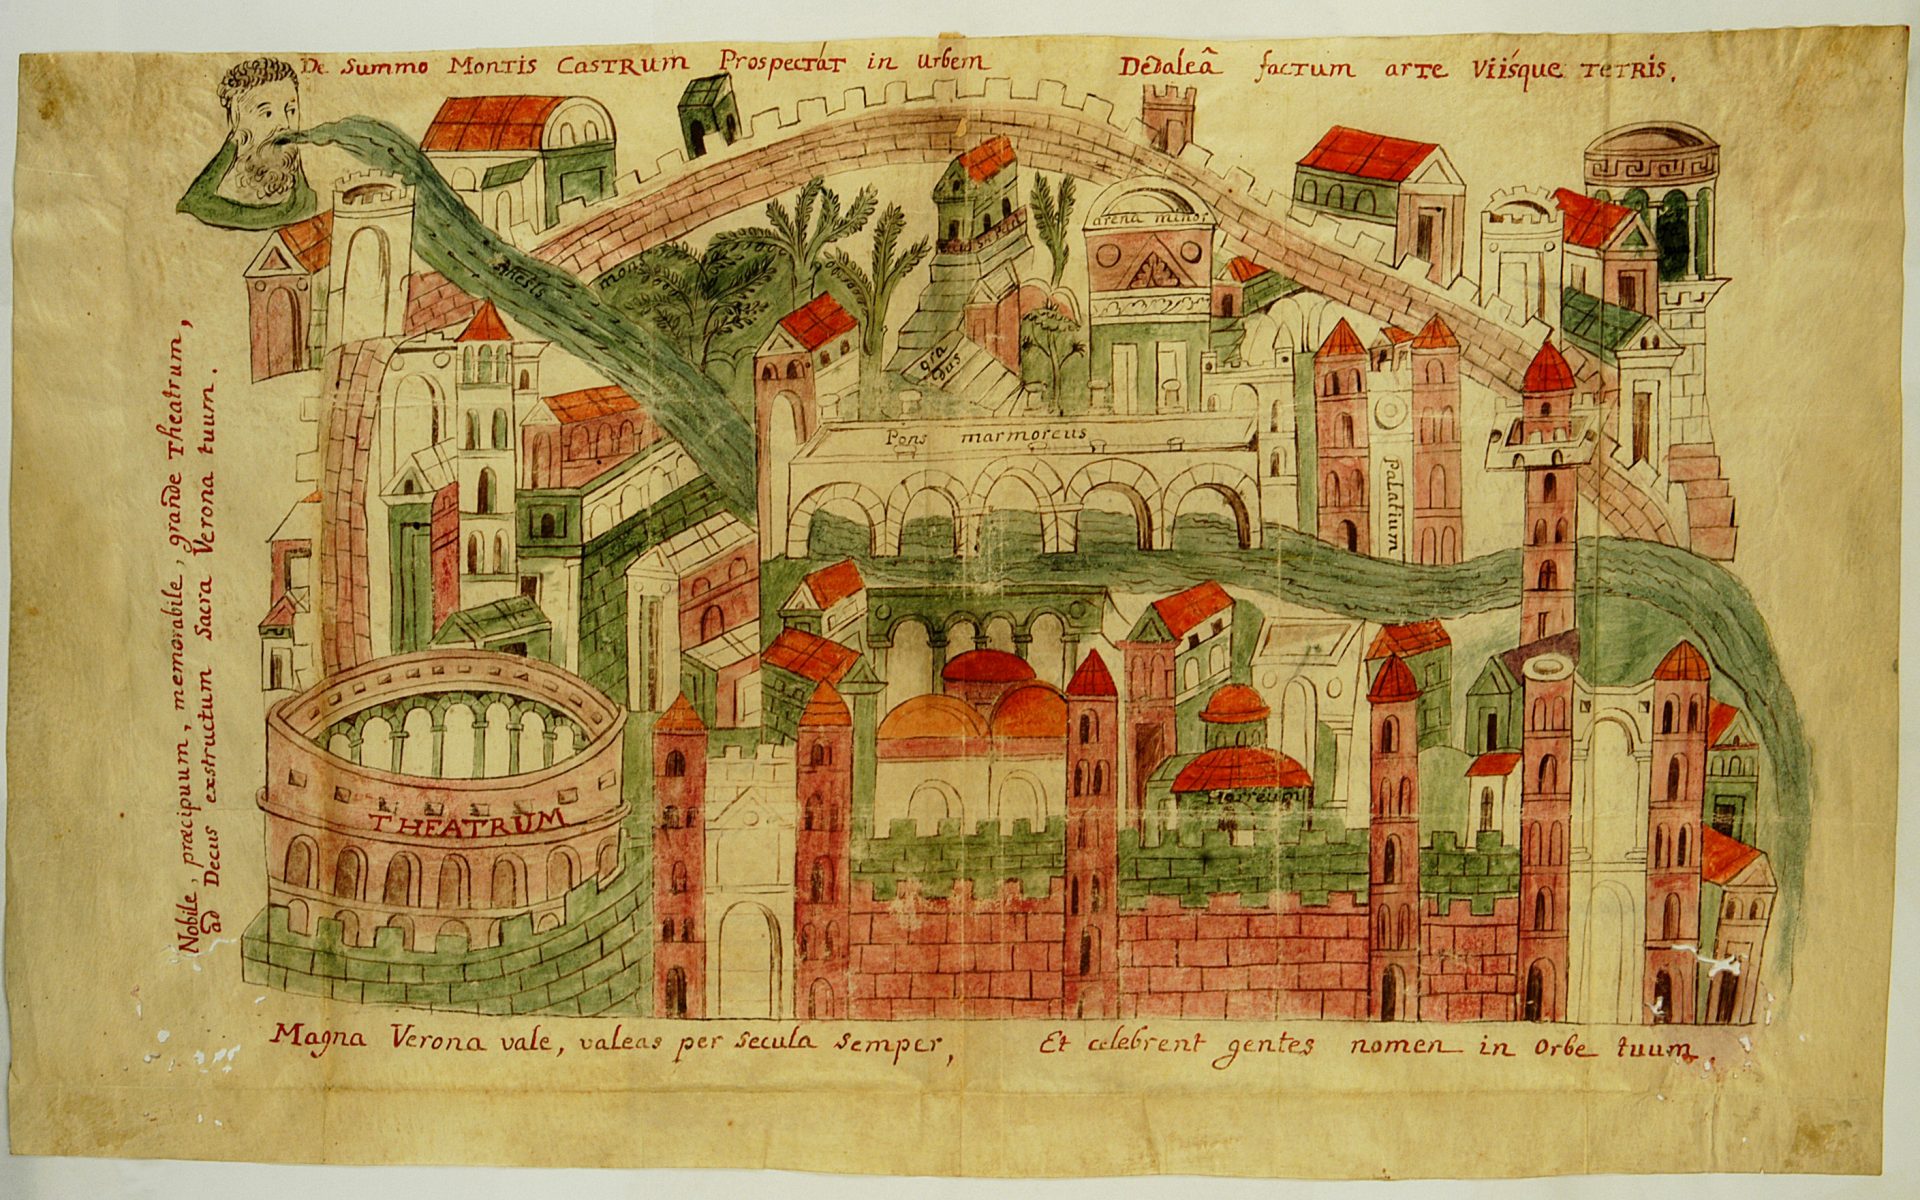 De Summo Montis Castrum Prospectat in Urbem Dedaleâ factum arte Viisque tetris.
Nobile, præcipuum, memorabile, grande Theatrum,
ad Decus exstructum Sacra Verona tuum.
arena minor
Athesis
mons
gradus
Pons marmoreus
Palatium
THEATRUM
Horreum
Magna Verona vale, valeas per secula semper, Et celebrent gentes nomen in Orbe tuum.